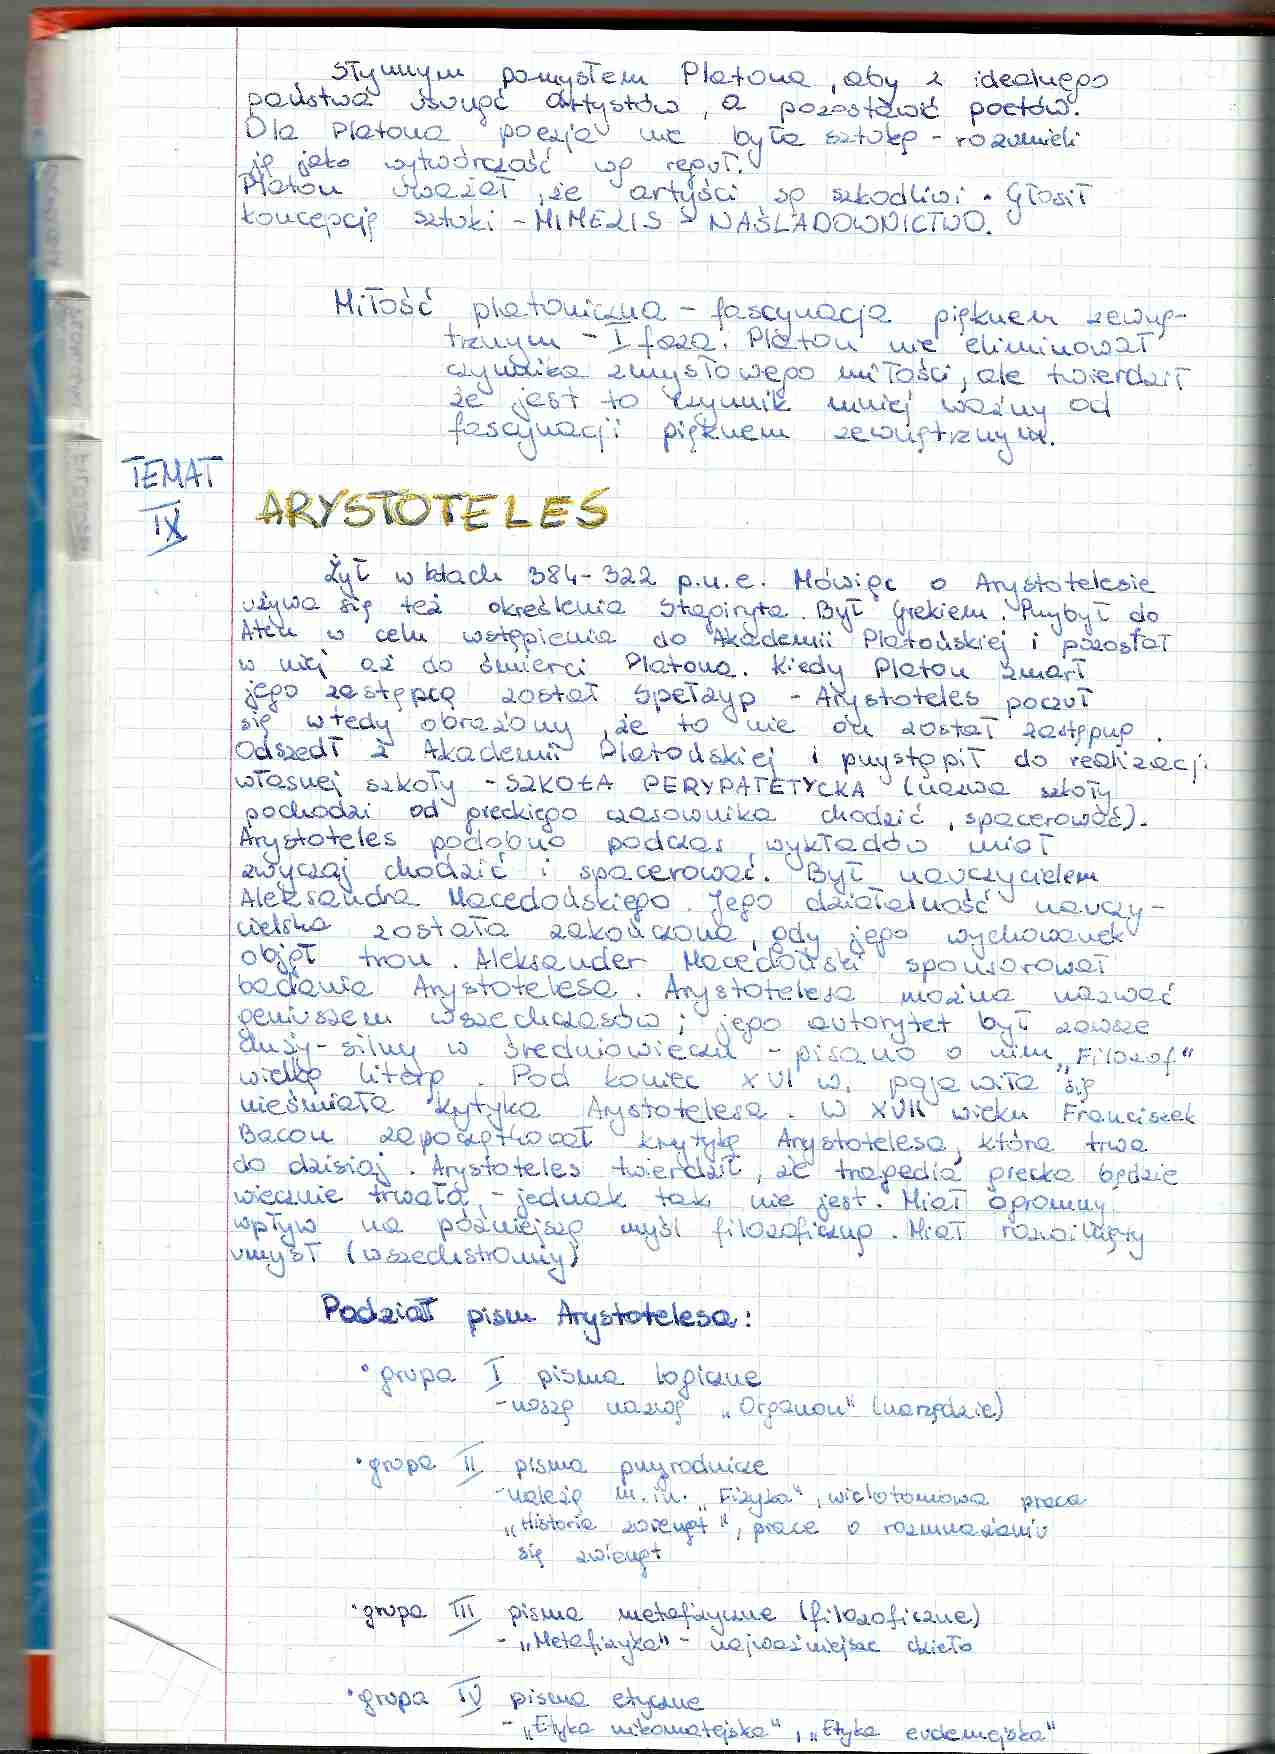 Słynnym pomysłem Platona, aby z idealnego
państwa usunąć artystów, a pozostawić poetów.
Dla Platona poezja nie była sztuką - rozumieli
ją jako wytwórczość wg reguł.
Platon uważał, że artyści są szkodliwi. Głosił
koncepcję sztuki - MIMEZIS - NAŚLADOWNICTWO.
Miłość platoniczna - fascynacja pięknem zewnę-
trznym - I faza. Platon nie eliminował
czynnika zmysłowego miłości, ale twierdził
że jest to czynnik mniej ważny od
fascynacji pięknem zewnętrznym.
TEMAT
IX
ARYSTOTELES
Żył w latach 384-322 p.n.e. Mówiąc o Arystotelesie
używa się też określenia Stagiryta. Był Grekiem. Przybył do
Aten w celu wstąpienia do Akademii Platońskiej i pozostał
w niej aż do śmierci Platona. Kiedy Platon zmarł
jego zastępcą został Speuzyp - Arystoteles poczuł
się wtedy obrażony, że to nie on został zastępcą.
Odszedł z Akademii Platońskiej i przystąpił do realizacji
własnej szkoły - SZKOŁA PERYPATETYCKA (nazwa szkoły
pochodzi od greckiego czasownika chodzić, spacerować).
Arystoteles podobno podczas wykładów miał
zwyczaj chodzić i spacerować. Był nauczycielem
Aleksandra Macedońskiego. Jego działalność nauczy-
cielska została zakończona, gdy jego wychowanek
objął tron. Aleksander Macedoński sponsorował
badania Arystotelesa. Arystotelesa można nazwać
geniuszem wszechczasów; jego autorytet był zawsze
duży - silny w średniowieczu - pisano o nim „Filozof"
wielką literą. Pod koniec XVI w. pojawiła się
nieśmiała krytyka Arystotelesa. W XVII wieku Franciszek
Bacon zapoczątkował krytykę Arystotelesa, która trwa
do dzisiaj. Arystoteles twierdził, że tragedia grecka będzie
wiecznie trwała, - jednak tak nie jest. Miał ogromny
wpływ na późniejszą myśl filozoficzną. Miał rozwinięty
umysł (wszechstronny)
Podział pism Arystotelesa:
• grupa I pisma logiczne
- noszą nazwę „Organon" (narzędzie)
• grupa II pisma przyrodnicze
- należą m.in. „Fizyka", wielotomowa praca
„Historia zwierząt", prace o rozmnażaniu
się zwierząt
• grupa III pisma metafizyczne (filozoficzne)
- „Metafizyka" - najważniejsze dzieło
• grupa IV pisma etyczne
- „Etyka nikomatejska", „Etyka eudemejska"